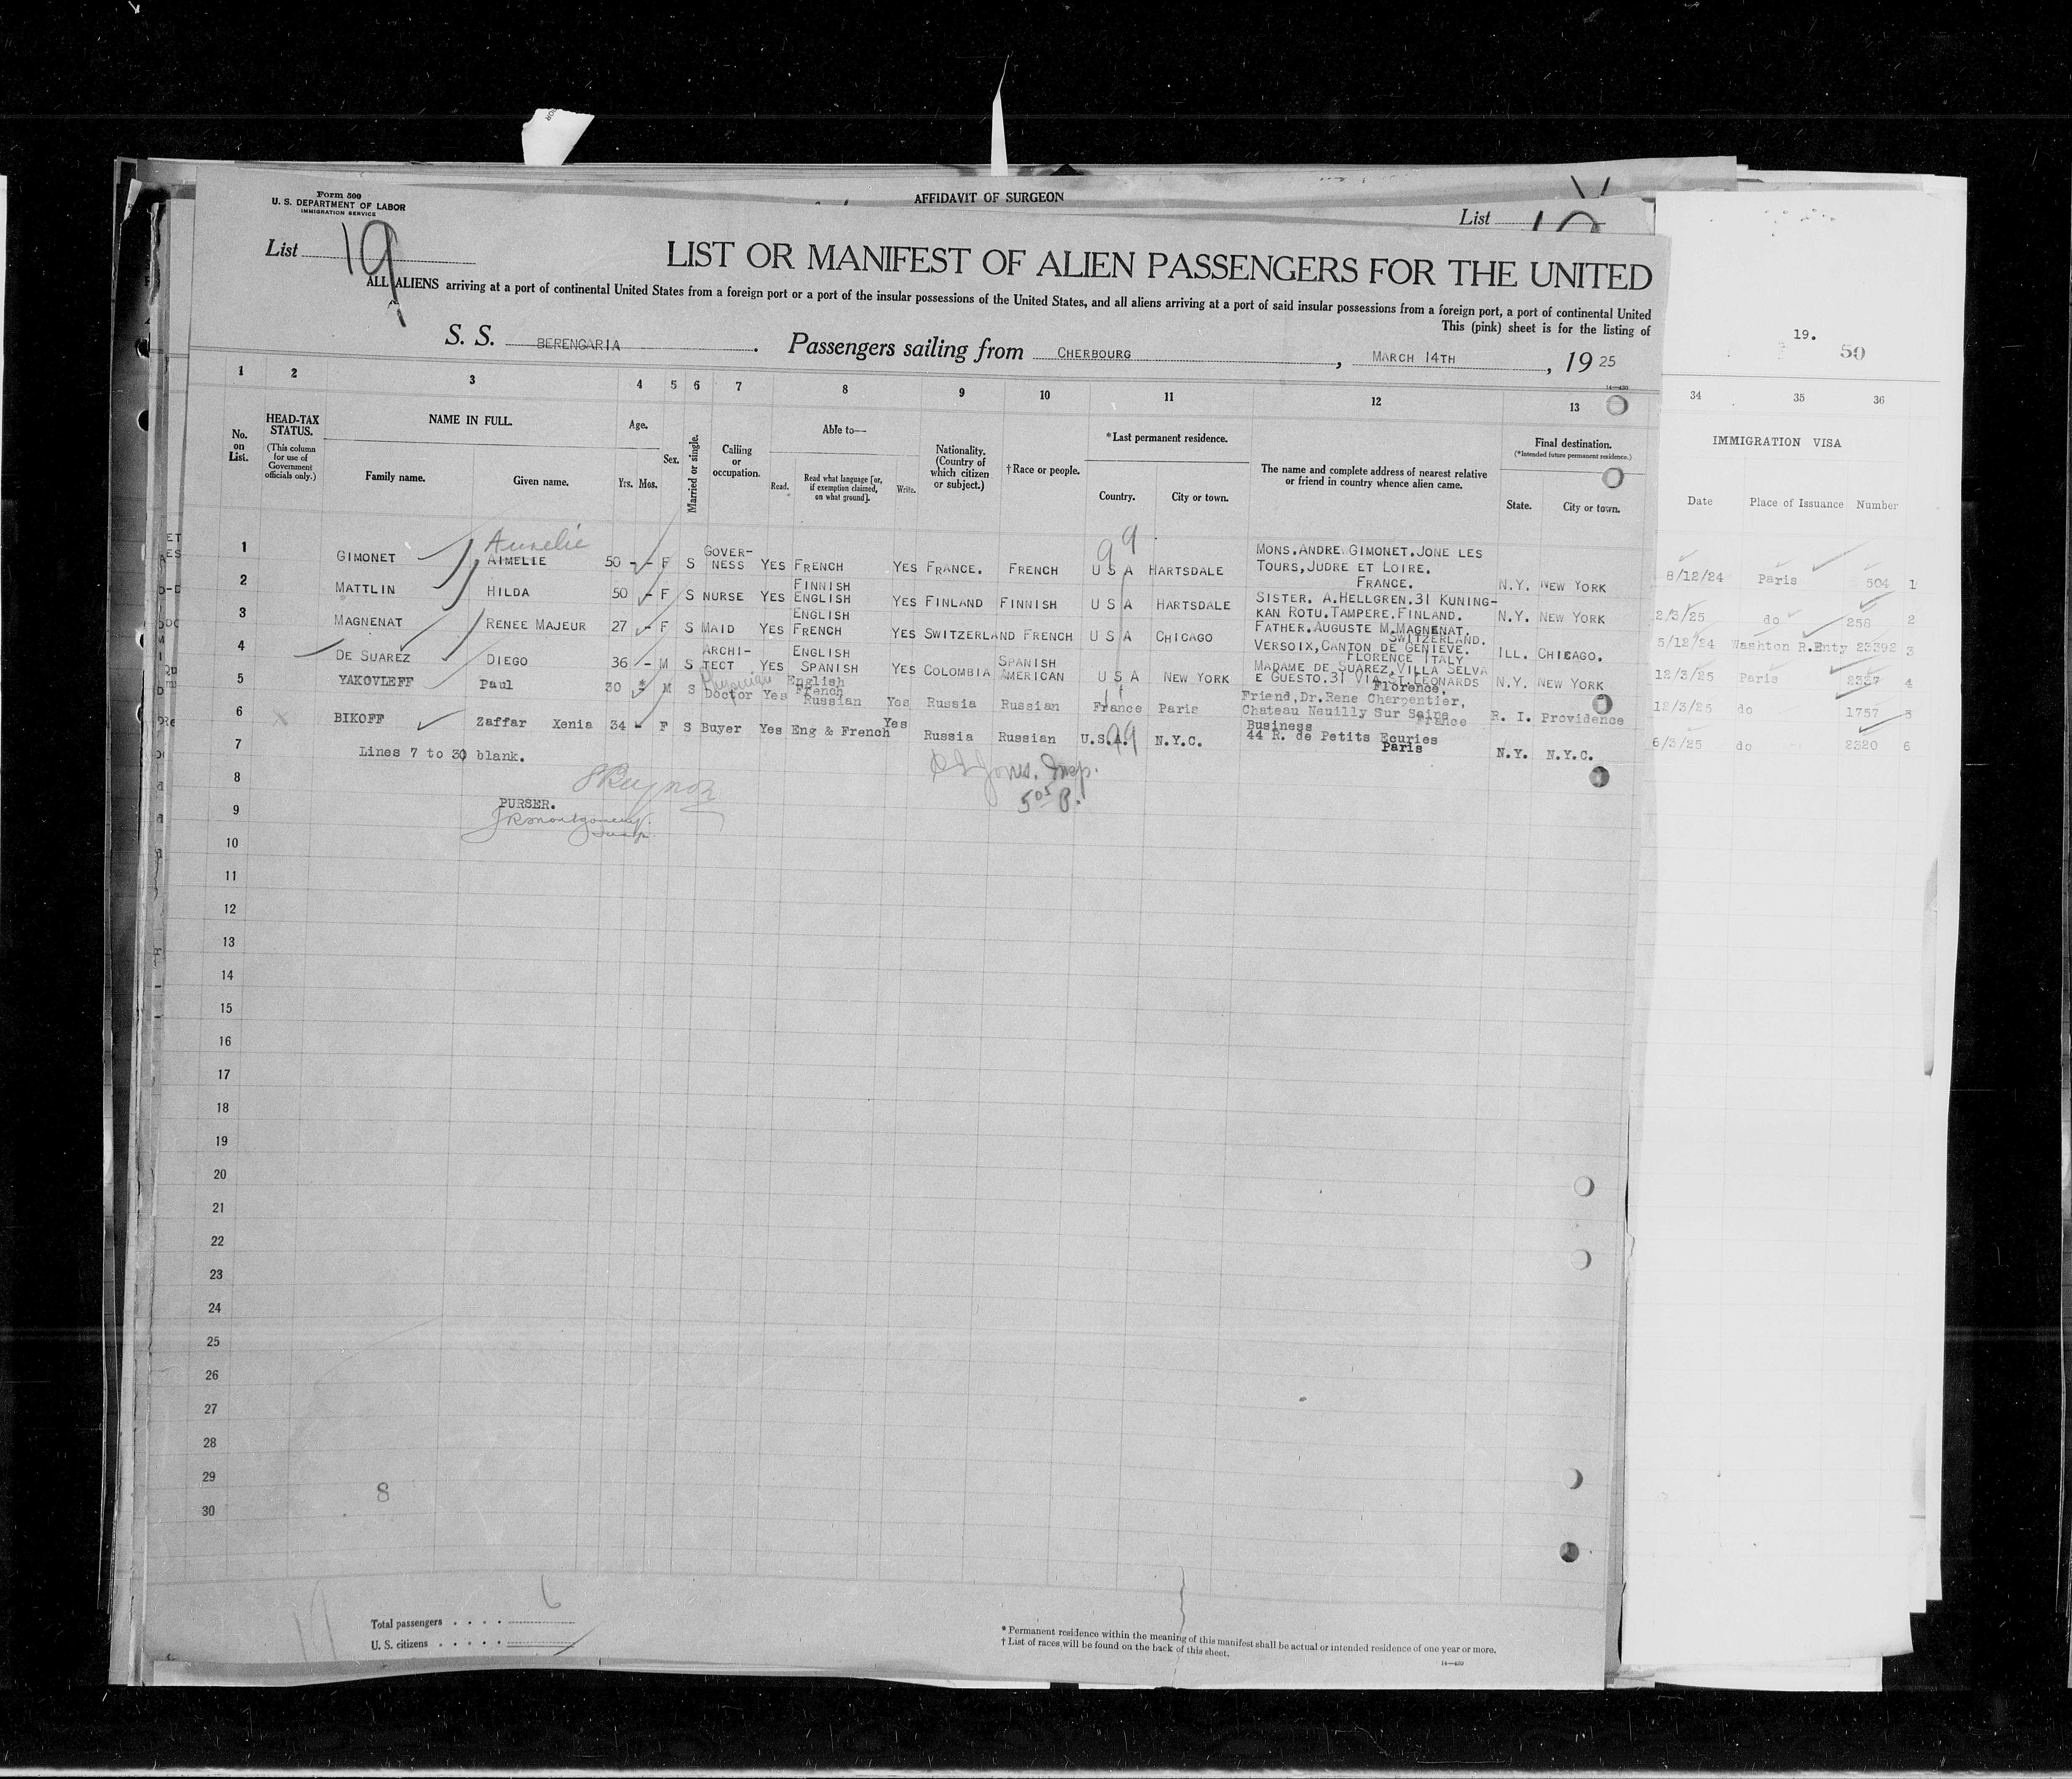 Form 500
U. S. DEPARTMENT OF LABOR
IMMIGRATION SERVICE
AFFIDAVIT OF SURGEON
List
List 19
LIST OR MANIFEST OF ALIEN PASSENGERS FOR THE UNITED
ALL ALIENS arriving at a port of continental United States from a foreign port or a port of the insular possessions of the United States, and all aliens arriving at a port of said insular possessions from a foreign port, a port of continental United
This (pink) sheet is for the listing of
S. S. BERENGARIA. Passengers sailing from CHERBOURG, MARCH 14TH, 1925
19. 50
1 2 3 4 5 6 7 8 9 10 11 12 13
34 35 36
No. on List.
HEAD-TAX STATUS.
(This column for use of Government officials only.)
NAME IN FULL.
Family name. Given name.
Age.
Yrs. Mos.
Sex.
Married or single.
Calling or occupation.
Able to—
Read. Read what language [or, if exemption claimed, on what ground]. Write.
Nationality. (Country of which citizen or subject.)
†Race or people.
*Last permanent residence.
Country. City or town.
The name and complete address of nearest relative or friend in country whence alien came.
Final destination.
(*Intended future permanent residence.)
State. City or town.
IMMIGRATION VISA
Date Place of Issuance Number
Aurelie
1 GIMONET AIMELIE 50 - F S GOVER-NESS YES FRENCH YES FRANCE. FRENCH U S A HARTSDALE MONS.ANDRE GIMONET.JONE LES TOURS,JUDRE ET LOIRE. FRANCE. N.Y. NEW YORK 8/12/24 Paris 504 1
2 MATTLIN HILDA 50 - F S NURSE YES FINNISH ENGLISH YES FINLAND FINNISH U S A HARTSDALE SISTER. A.HELLGREN.31 KUNING-KAN ROTU.TAMPERE.FINLAND. N.Y. NEW YORK 2/3/25 do 258 2
3 MAGNENAT RENEE MAJEUR 27 - F S MAID YES ENGLISH FRENCH YES SWITZERLAND FRENCH U S A CHICAGO FATHER.AUGUSTE M.MAGNENAT. SWITZERLAND. VERSOIX,CANTON DE GENIEVE. ILL. CHICAGO. 5/12/24 Washton R.Enty 23392 3
4 DE SUAREZ DIEGO 36 - M S ARCHI-TECT YES ENGLISH SPANISH YES COLOMBIA SPANISH AMERICAN U S A NEW YORK FLORENCE ITALY MADAME DE SUAREZ,VILLA SELVA E GUESTO.31 VIA ST.LEONARDS Florence, N.Y. NEW YORK 12/3/25 Paris 2337 4
5 YAKOVLEFF Paul 30 M S Physician Doctor Yes English French Russian Yes Russia Russian France Paris Friend,Dr.Rene Charpentier, Chateau Neuilly Sur Seine France R. I. Providence 12/3/25 do 1757 5
6 BIKOFF Zaffar Xenia 34 - F S Buyer Yes Eng & French Yes Russia Russian U.S.A. N.Y.C. Business 44 R. de Petits Ecuries Paris N.Y. N.Y.C. 6/3/25 do 2320 6
7 Lines 7 to 30 blank.
Jones, Insp.
8
PURSER.
9
JR Montgomery
Insp.
10
11
12
13
14
15
16
17
18
19
20
21
22
23
24
25
26
27
28
29
30
8
Total passengers . . . . 6
U. S. citizens . . . . .
* Permanent residence within the meaning of this manifest shall be actual or intended residence of one year or more.
† List of races will be found on the back of this sheet.
14—430